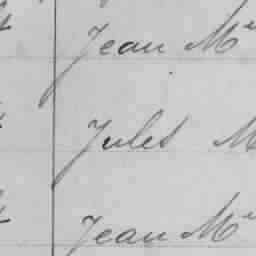 Jean Me
Jules M
Jean Me